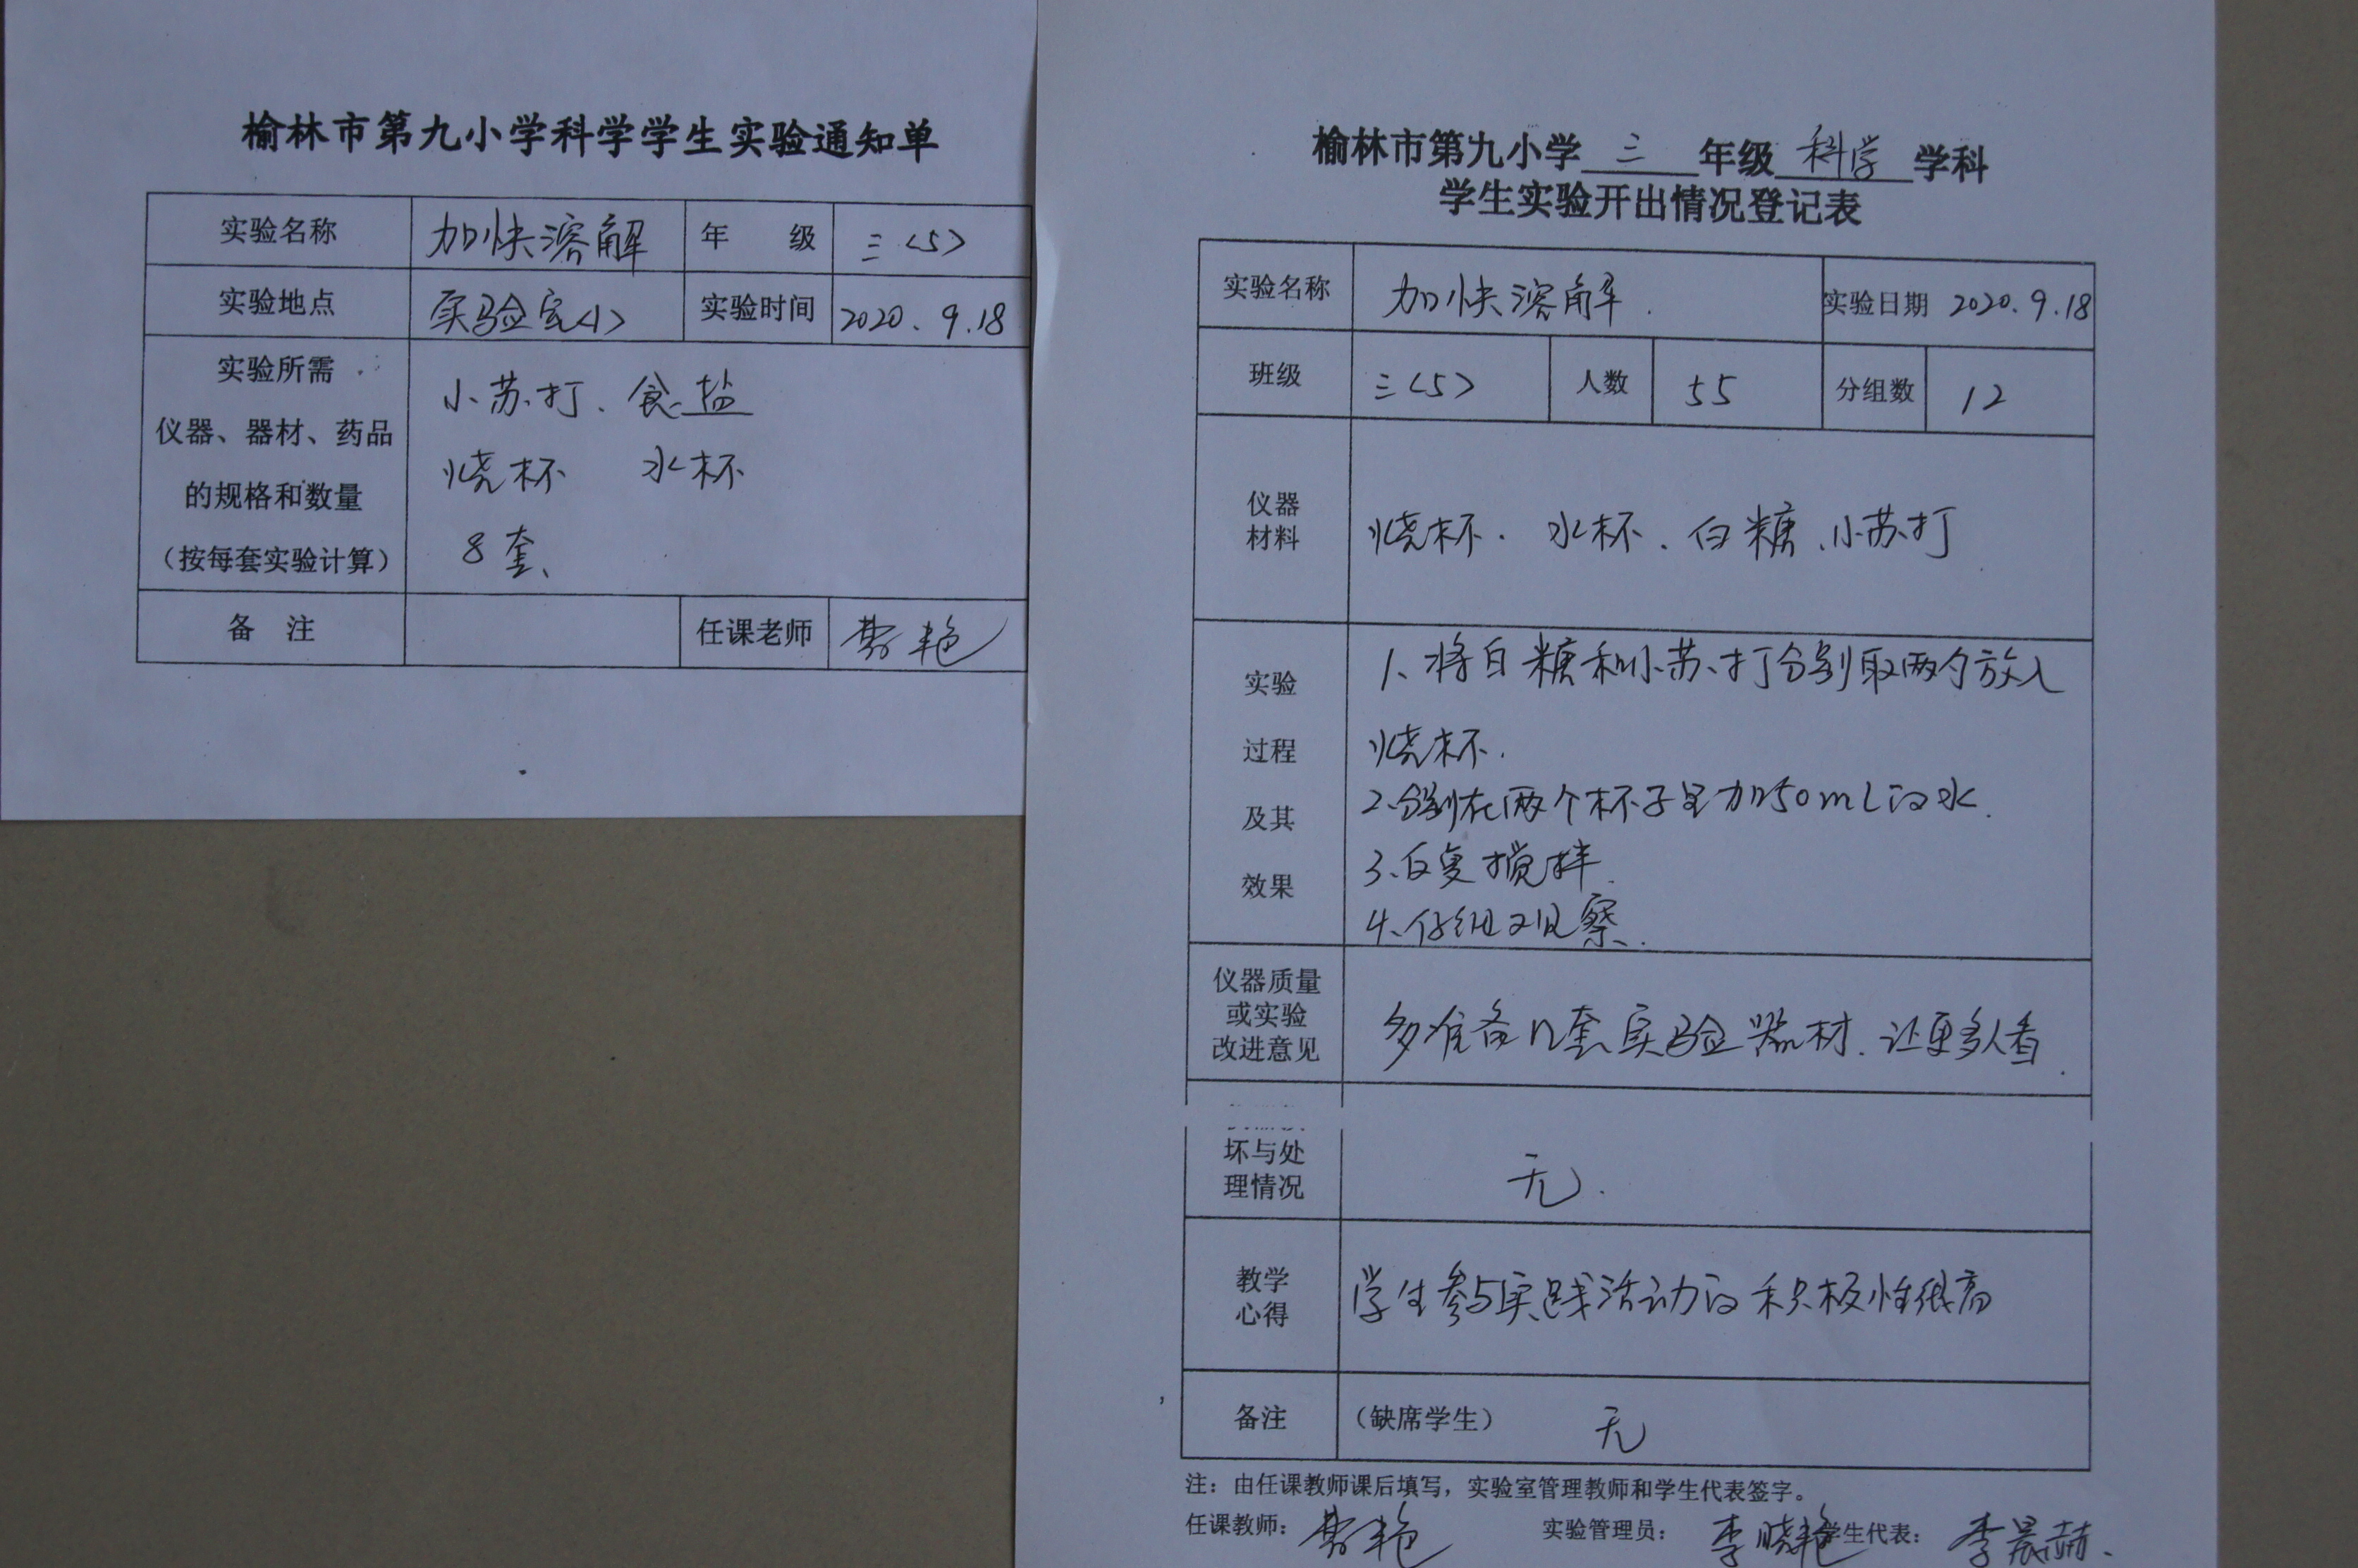 榆林市第九小学科学学生实验通知单
实验名称 加快溶解 年 级 三<5>
实验地点 实验室<1> 实验时间 2020.9.18
实验所需
仪器、器材、药品
的规格和数量
（按每套实验计算）
小苏打、食盐
烧杯 水杯
8套、
备 注 任课老师 艳
榆林市第九小学 三 年级 科学 学科
学生实验开出情况登记表
实验名称 加快溶解. 实验日期 2020.9.18
班级 三<5> 人数 55 分组数 12
仪器
材料
烧杯.水杯.白糖.小苏打
实验
过程
及其
效果
1、将白糖和小苏打分别取两勺放入
烧杯.
2.分别在两个杯子里加50mL的水.
3、反复搅拌.
4、仔细观察.
仪器质量
或实验
改进意见
多准备几套实验器材.让更多人看.
坏与处
理情况
无.
教学
心得
学生参与实践活动的积极性很高
备注 （缺席学生） 无
注：由任课教师课后填写，实验室管理教师和学生代表签字。
任课教师： 艳 实验管理员： 李晓艳 学生代表： 李晨赫.